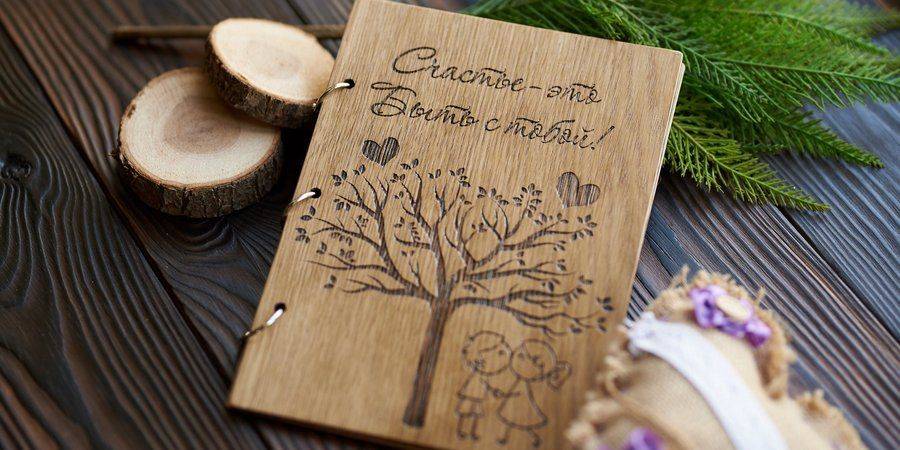 Счастье - это
Быть с тобой!